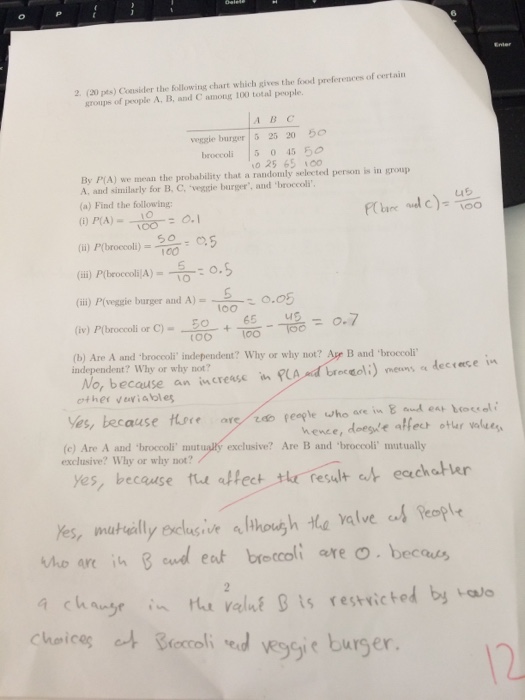 2. (20 pts) Consider the following chart which gives the food preferences of certain
groups of people A, B, and C among 100 total people.
A B C
veggie burger 5 25 20 50
broccoli 5 0 45 50
10 25 65 100
By P(A) we mean the probability that a randomly selected person is in group
A, and similarly for B, C, 'veggie burger', and 'broccoli'.
(a) Find the following:
P(broc and c) = 45/100
(i) P(A) = 10/100 = 0.1
(ii) P(broccoli) = 50/100 = 0.5
(iii) P(broccoli|A) = 5/10 = 0.5
(iii) P(veggie burger and A) = 5/100 = 0.05
(iv) P(broccoli or C) = 50/100 + 65/100 - 45/100 = 0.7
(b) Are A and 'broccoli' independent? Why or why not? Are B and 'broccoli'
independent? Why or why not?
No, because an increase in P(A and broccoli) means a decrease in
other variables
Yes, because there are zero people who are in B and eat broccoli
hence, affect other values
(c) Are A and 'broccoli' mutually exclusive? Are B and 'broccoli' mutually
exclusive? Why or why not?
Yes, because the affect the result of eachother
Yes, mutually exclusive although the value of people
who are in B and eat broccoli are 0. becaus
a change in the value B is restricted by two
choices of Broccoli and veggie burger.
2
12
Delete
O
P
6
Enter